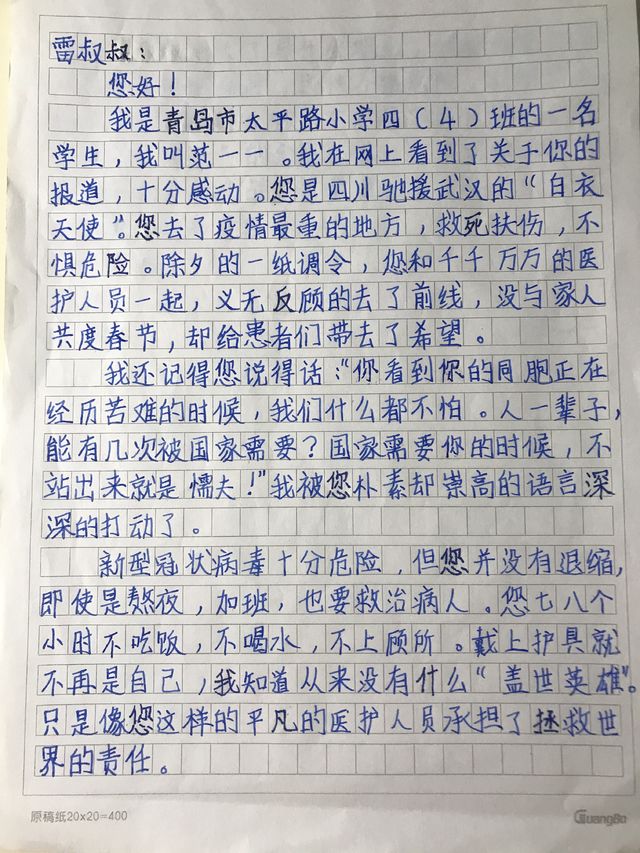 雷叔叔：
您好！
我是青岛市太平路小学四（4）班的一名
学生，我叫范一一。我在网上看到了关于你的
报道，十分感动。您是四川驰援武汉的“白衣
天使”。您去了疫情最重的地方，救死扶伤，不
惧危险。除夕的一纸调令，您和千千万万的医
护人员一起，义无反顾的去了前线，没与家人
共度春节，却给患者们带去了希望。
我还记得您说得话：“你看到你的同胞正在
经历苦难的时候，我们什么都不怕。人一辈子，
能有几次被国家需要？国家需要你的时候，不
站出来就是懦夫！”我被您朴素却崇高的语言深
深的打动了。
新型冠状病毒十分危险，但您并没有退缩，
即使是熬夜，加班，也要救治病人。您七八个
小时不吃饭，不喝水，不上顾所。戴上护具就
不再是自己，我知道从来没有什么“盖世英雄”。
只是像您这样的平凡的医护人员承担了拯救世
界的责任。
原稿纸20x20=400
GuangBo